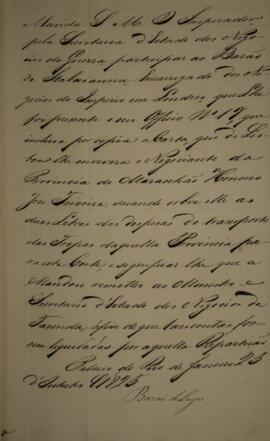 Manda S. M. O Imperador
pela Secretaria d'Estado dos Nego
cios da Guerra participar ao Barão
de Itabaiana, Encarregado dos Ne
gocios do Imperio em Londres, que Lhe
foi presente o seu Officio Nº 19 que
incluia por copia a Carta, que de Lis
boa lhe escrevera o Negociante da
Provincia do Maranhão Honorio
José Teixeira sacando sobre elle as
duas Letras das despezas do transporte
das Tropas daquella Provincia pa
ra esta Corte, e significar lhe que a
Mandou remetter ao Ministro e
Secretario d'Estado dos Negocios da
Fazenda, afim de que taes contas fos
sem liquidadas por aquella Repartição
Palacio do Rio de Janeiro 25
d' 1825
Barão de Lages